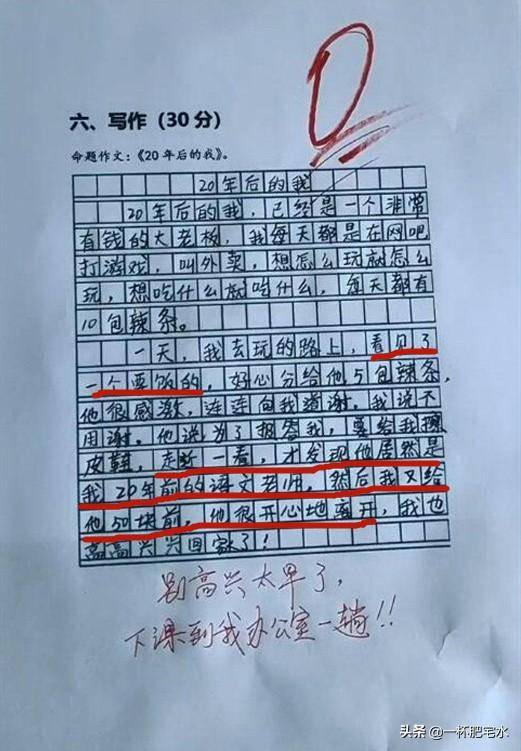 0
六、写作（30分）
命题作文：《20年后的我》。
20年后的我
20年后的我，已经是一个非常
有钱的大老板，我每天都是在网吧
打游戏，叫外卖，想怎么玩就怎么
玩，想吃什么就吃什么，每天都有
10包辣条。
一天，我去玩的路上，看见了
一个要饭的，好心分给他5包辣条，
他很感激，连连向我道谢。我说不
用谢。他说为了报答我，要给我擦
皮鞋，走近一看，才发现他居然是
我20年前的语文老师，然后我又给
他50块前，他很开心地离开，我也
高高兴兴回家了！
别高兴太早了，
下课到我办公室一趟！！
头条 @一杯肥宅水